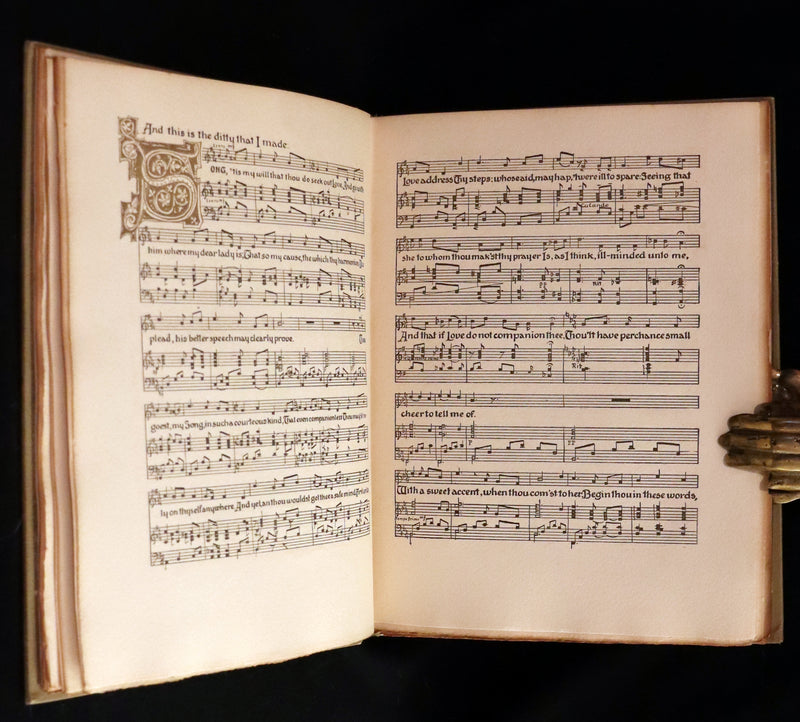 And this is the ditty that I made:
SONG, 'tis my will that thou do seek out Love, And go with
him where my dear lady is; That so my cause, the which thy harmonies
plead, his better speech may clearly prove. Thou
goest, my Song, in such a courteous kind, That even companionless Thou may'st
ly on thyself anywhere. And yet, an thou wouldst get thee a safe mind, First
Love address Thy steps: whose aid, mayhap, 'twere ill to spare: Seeing that
Calando
she to whom thou mak'st thy prayer Is, as I think, ill-minded unto me,
Rit
And that if Love do not companion thee, Thou'lt have perchance small
Rit
cheer to tell me of.
With a sweet accent, when thou com'st to her, Begin thou in these words,
Tempo Primo